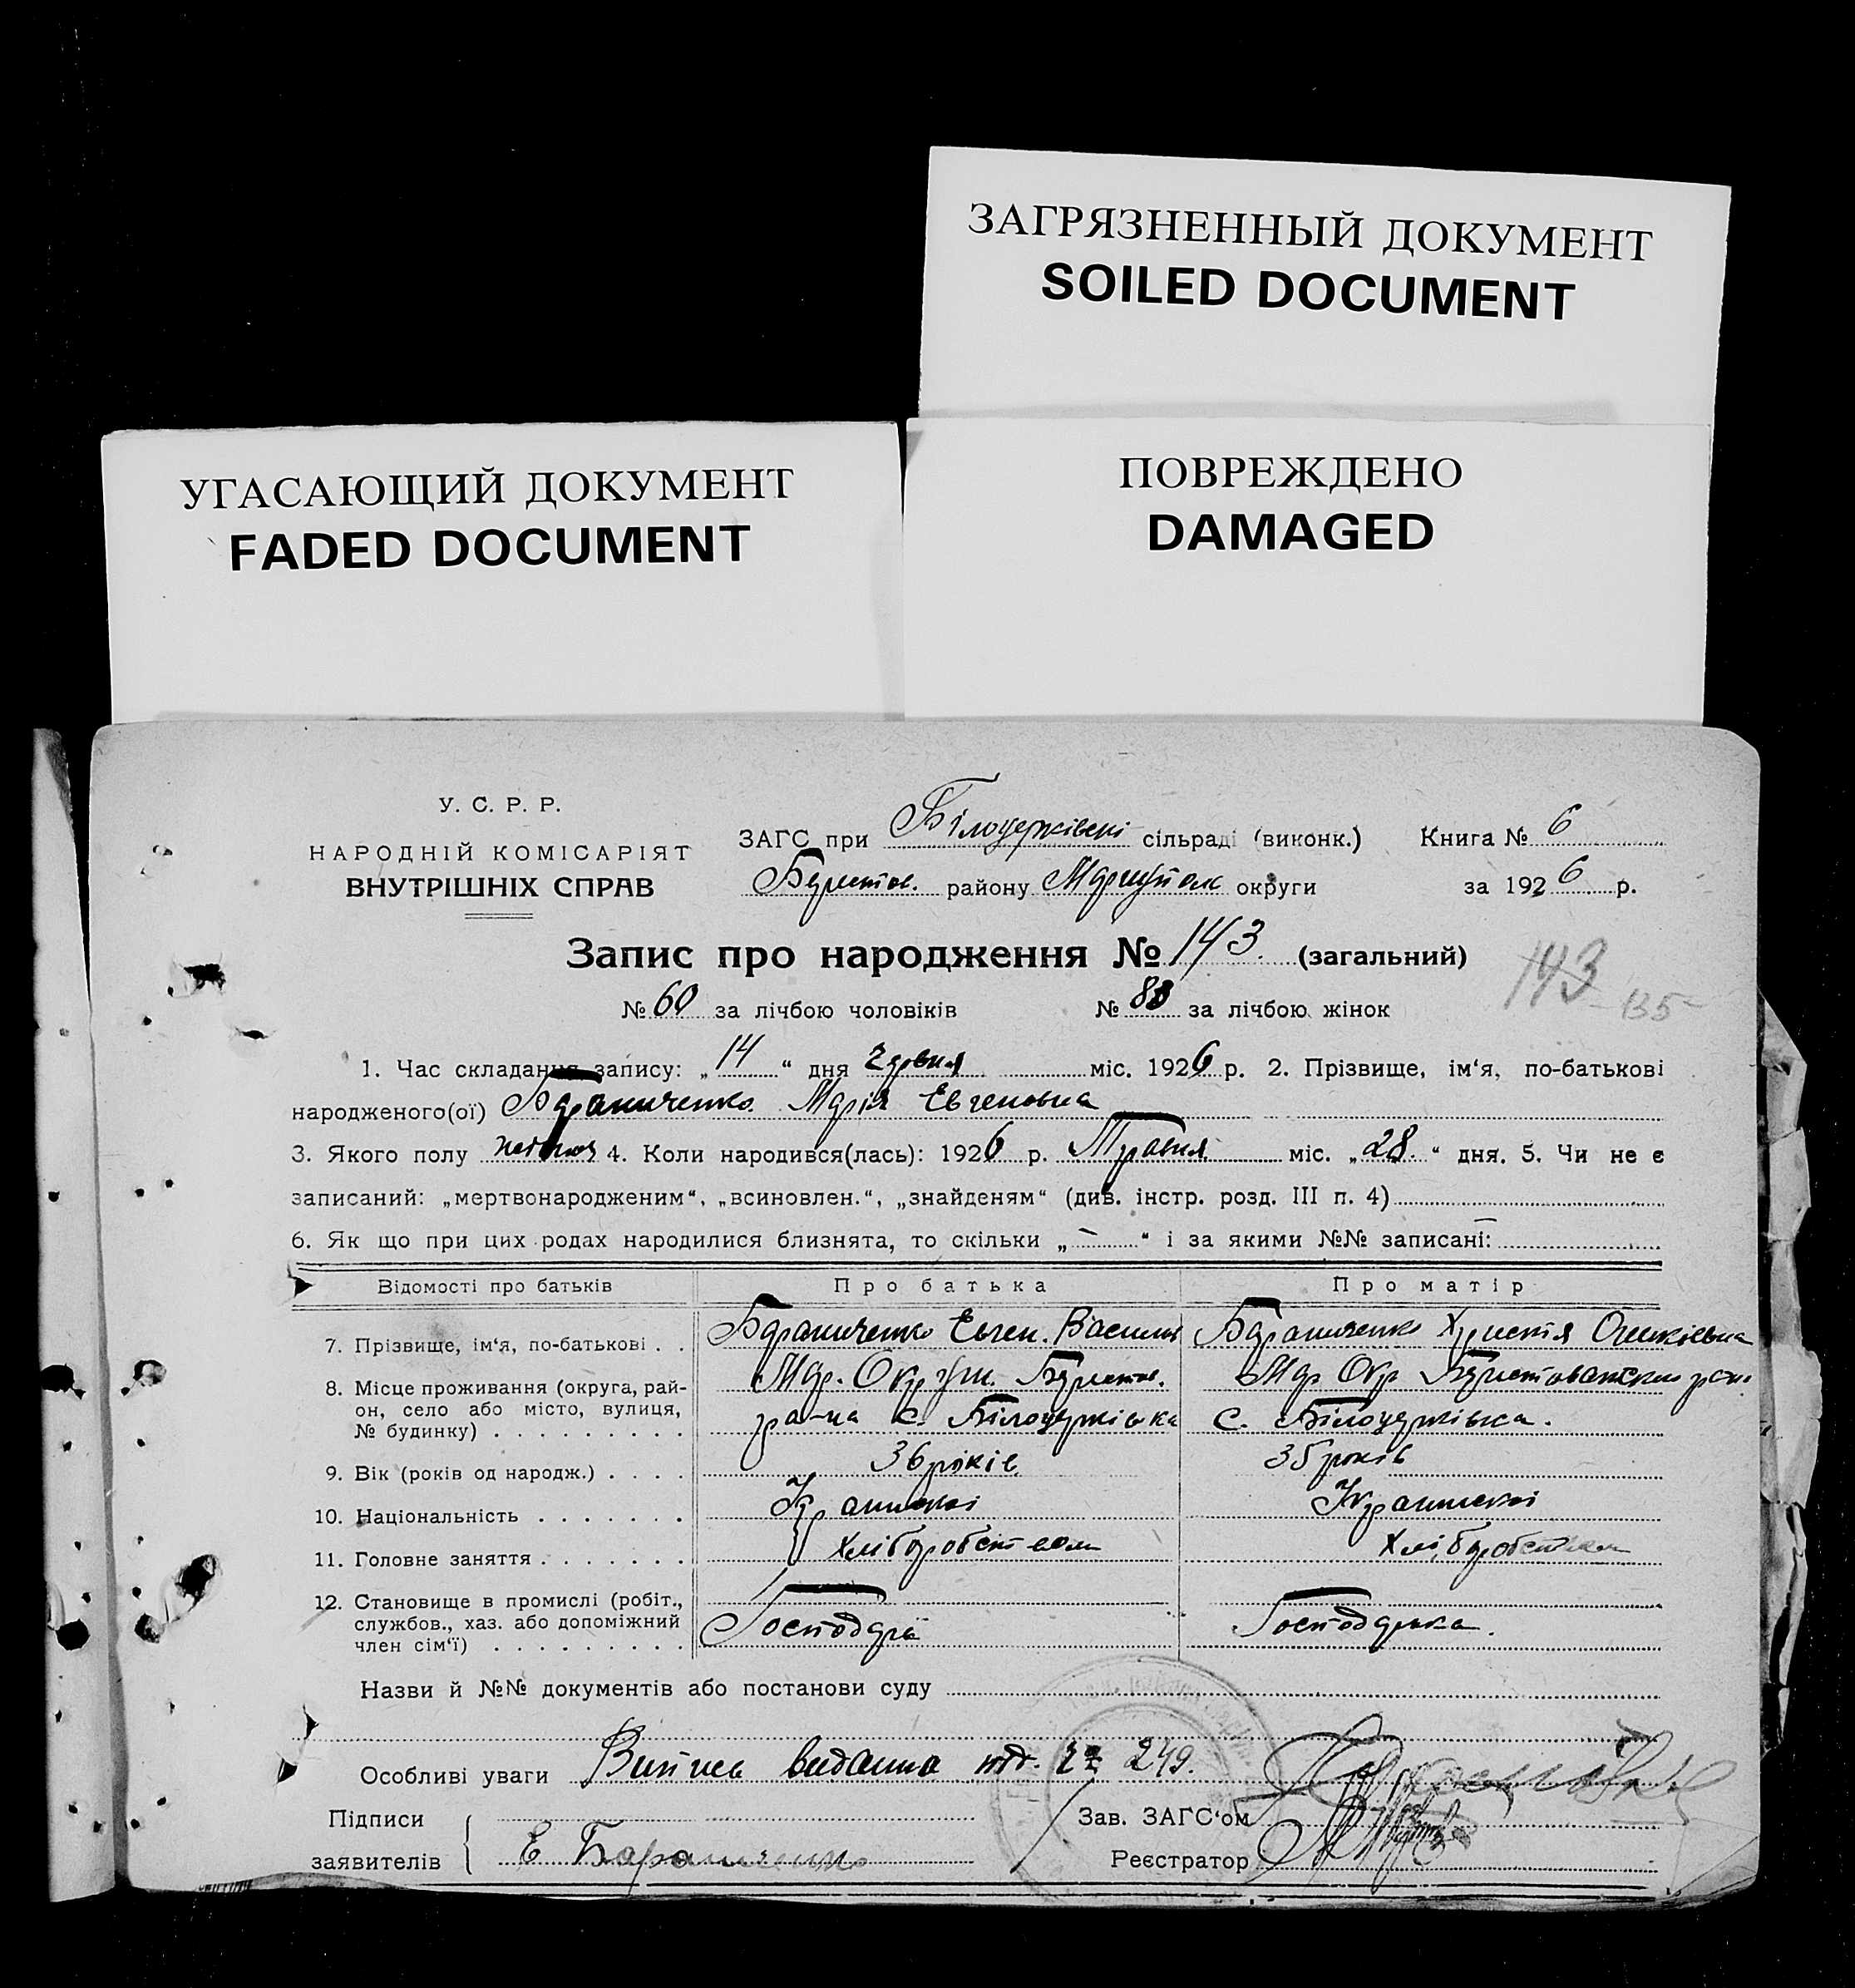 ЗАГРЯЗНЕННЫЙ ДОКУМЕНТ
SOILED DOCUMENT
УГАСАЮЩИЙ ДОКУМЕНТ
FADED DOCUMENT
ПОВРЕЖДЕНО
DAMAGED
У. С. Р. Р.
НАРОДНІЙ КОМІСАРІЯТ
ВНУТРІШНІХ СПРАВ
ЗАГС при Білоцерківскі сільраді (виконк.) Книга № 6
Берестов. району Маріупол округи за 1926 р.
Запис про народження № 143. (загальний)
143 135
№ 60 за лічбою чоловіків № 83 за лічбою жінок
1. Час складання запису: „14“ дня міс. 1926 р. 2. Прізвище, ім‘я, по-батькові
народженого(ої) Бараниченко Марія Евгеновна
3. Якого полу 4. Коли народився(лась): 1926 р. Травня міс. „28“ дня. 5. Чи не є
записаний: „мертвонародженим“, „всиновлен.“, „знайденям“ (див. інстр. розд. III п. 4)
6. Як що при цих родах народилися близнята, то скільки „–“ і за якими №№ записані: –
Відомості про батьків Про батька Про матір
7. Прізвище, ім‘я, по-батькові . . Бараниченко Евген. Василів Бараниченко Христя
8. Місце проживання (округа, рай- Мар. Округи. Берестов. Мар Окр
он, село або місто, вулиця, ра-на с. Білоцерківка с. Білоцерківка.
№ будинку) . . . . . . . . .
9. Вік (років од народж.) . . . . 36 років 35 років
10. Національність . . . . . . . Украинскоі Украинскоі
11. Головне заняття . . . . . . . Хліборобством Хліборобством
12. Становище в промислі (робіт.,
службов., хаз. або допоміжний Господарка.
член сім‘ї) . . . . . . . . .
Назви й №№ документів або постанови суду
Особливі уваги Випись видання 249.
Підписи Зав. ЗАГС‘ом
заявителів Е Бараниченко Реєстратор